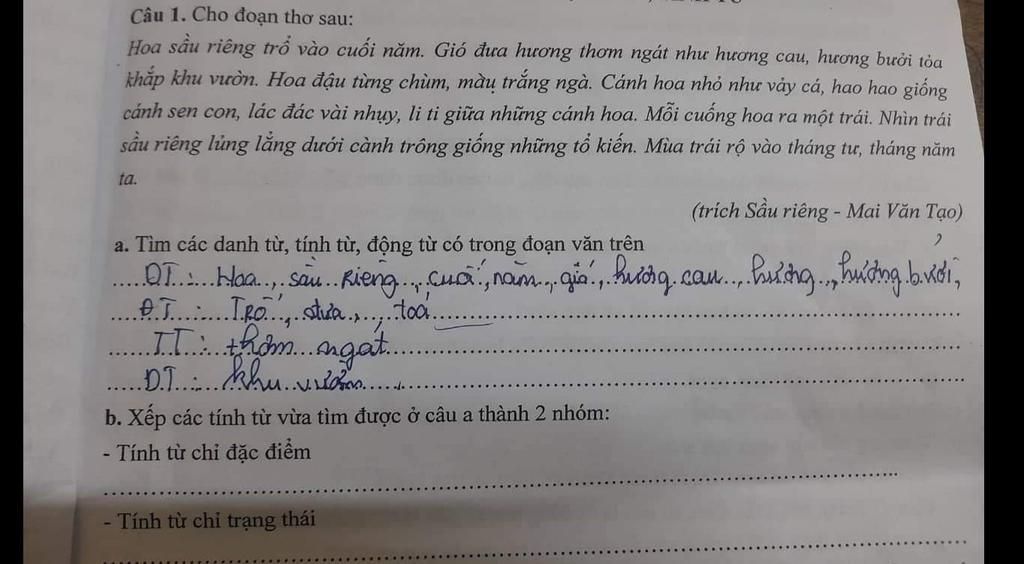 Câu 1. Cho đoạn thơ sau:
Hoa sầu riêng trổ vào cuối năm. Gió đưa hương thơm ngát như hương cau, hương bưởi tỏa
khắp khu vườn. Hoa đậu từng chùm, màu trắng ngà. Cánh hoa nhỏ như vảy cá, hao hao giống
cánh sen con, lác đác vài nhụy, li ti giữa những cánh hoa. Mỗi cuống hoa ra một trái. Nhìn trái
sầu riêng lủng lẳng dưới cành trông giống những tổ kiến. Mùa trái rộ vào tháng tư, tháng năm
ta.
(trích Sầu riêng - Mai Văn Tạo)
a. Tìm các danh từ, tính từ, động từ có trong đoạn văn trên
DT: Hoa, sầu Riêng, cuối, năm, gió, hương cau, hương, hương bưởi,
ĐT: Trổ, đưa, toả
TT: thơm ngát
DT: khu vườn
b. Xếp các tính từ vừa tìm được ở câu a thành 2 nhóm:
- Tính từ chỉ đặc điểm
- Tính từ chỉ trạng thái